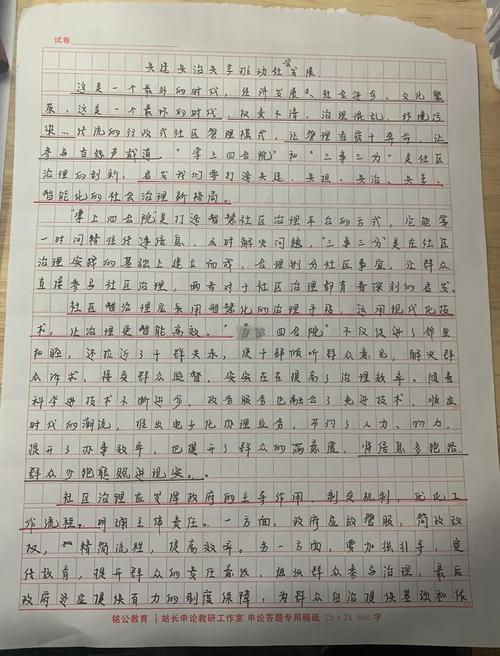 试卷
共建共治共享推动社会发展
这是一个最好的时代，经济发展、社会进步、文化繁
荣，这是一个最坏的时代，权责不清，治理混乱，环境污
染…传统的行政式社区管理模式，让管理者疲于奔命，让
参与者怨声载道。“掌上四合院”和“三事三分”是社区
治理的创新，启发我们要打造共建、共治、共享、
智能化的社会治理新格局。
“掌上四合院”是打造智慧社区治理平台的方式，它能第
一时间精准传递信息，及时解决问题，“三事三分”是在社区
治理实践的基础上建立而成，合理划分社区事宜，让群众
直接参与社区治理，两者对于社区治理都有着深刻的启发。
社区智治理应采用智慧化的治理手段，运用现代化技
术，让治理更智能高效。“掌上四合院”不仅促进了邻里
和睦，还拉近了干群关系，使干部倾听群众意见，解决群
众诉求，接受群众监督，实实在在提高了治理效率。随着
科学技术不断进步，政务服务也融合了先进技术，顺应
时代的潮流，推出电子化办理业务，节约了人力、物力，
提升了办事效率，也提升了群众的满意度，将信息多跑路
群众少跑腿照进现实。
社区治理应发挥政府的主导作用，制度机制，优化工
作流程。明确主体责任。一方面，政府应放管服，简政放
权，精简流程，提高效率。另一方面，要加强引导，宣
传教育，提升群众的责任意识，组织群众参与治理，最后
政府还应提供有力的制度保障，为群众自治提供基础和依
铭公教育 | 站长申论教研工作室 申论答题专用稿纸 25×24 600字